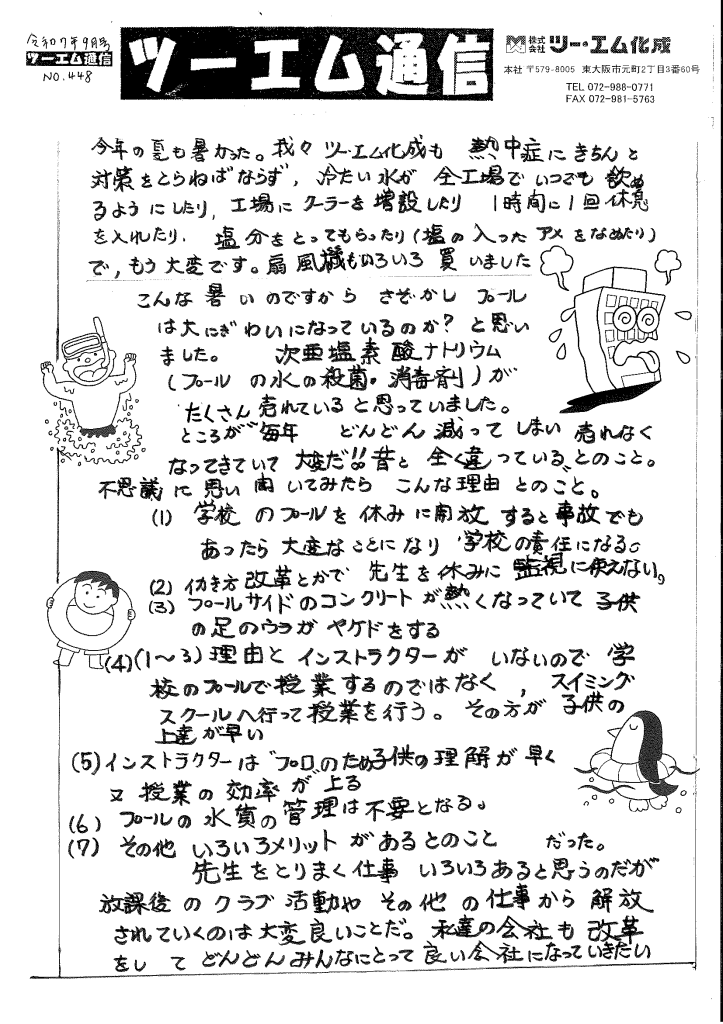 令和7年9月号
ツーエム通信
NO.448
ツーエム通信
株式会社 ツー・エム化成
本社 〒579-8005 東大阪市元町2丁目3番60号
TEL 072-988-0771
FAX 072-981-5763
今年の夏も暑かった。我々 ツーエム化成も 熱中症にきちんと
対策をとらねばならず、冷たい水が 全工場でいつでも 飲め
るようにしたり、工場に クーラーを 増設したり 1時間に1回 休憩
を入れたり、塩分をとってもらったり(塩の入った アメをなめたり)
で、もう大変です。扇風機もいろいろ 買いました
こんな 暑いのですから さぞかし プール
は大にぎわいになっているのか?と思い
ました。 次亜塩素酸ナトリウム
(プールの水の殺菌・消毒剤)が
たくさん売れていると思っていました。
ところが 毎年 どんどん 減って しまい 売れなく
なってきていて 大変だ!!昔と 全く違っている、とのこと。
不思議に思い 聞いてみたら こんな理由 とのこと。
(1) 学校 のプールを 休みに開放 すると 事故でも
あったら 大変なことになり 学校の責任になる。
(2) 働き方改革とかで 先生を休みに 監視に使えない。
(3) プールサイドのコンクリートが熱くなっていて 子供
の足のウラが ヤケドをする
(4)(1~3)理由と インストラクターが いないので 学
校のプールで授業するのではなく , スイミング
スクールへ行って授業を行う。その方が 子供の
上達が早い
(5)インストラクターは プロのため子供の理解が早く
又 授業の 効率が上る
(6) プールの水質の管理は不要となる。
(7) その他 いろいろメリットがあるとのこと だった。
先生をとりまく仕事 いろいろあると思うのだが
放課後の クラブ活動や その他の仕事から 解放
されていくのは大変良いことだ。私達の会社も 改革
をして どんどんみんなにとって良い会社になっていきたい